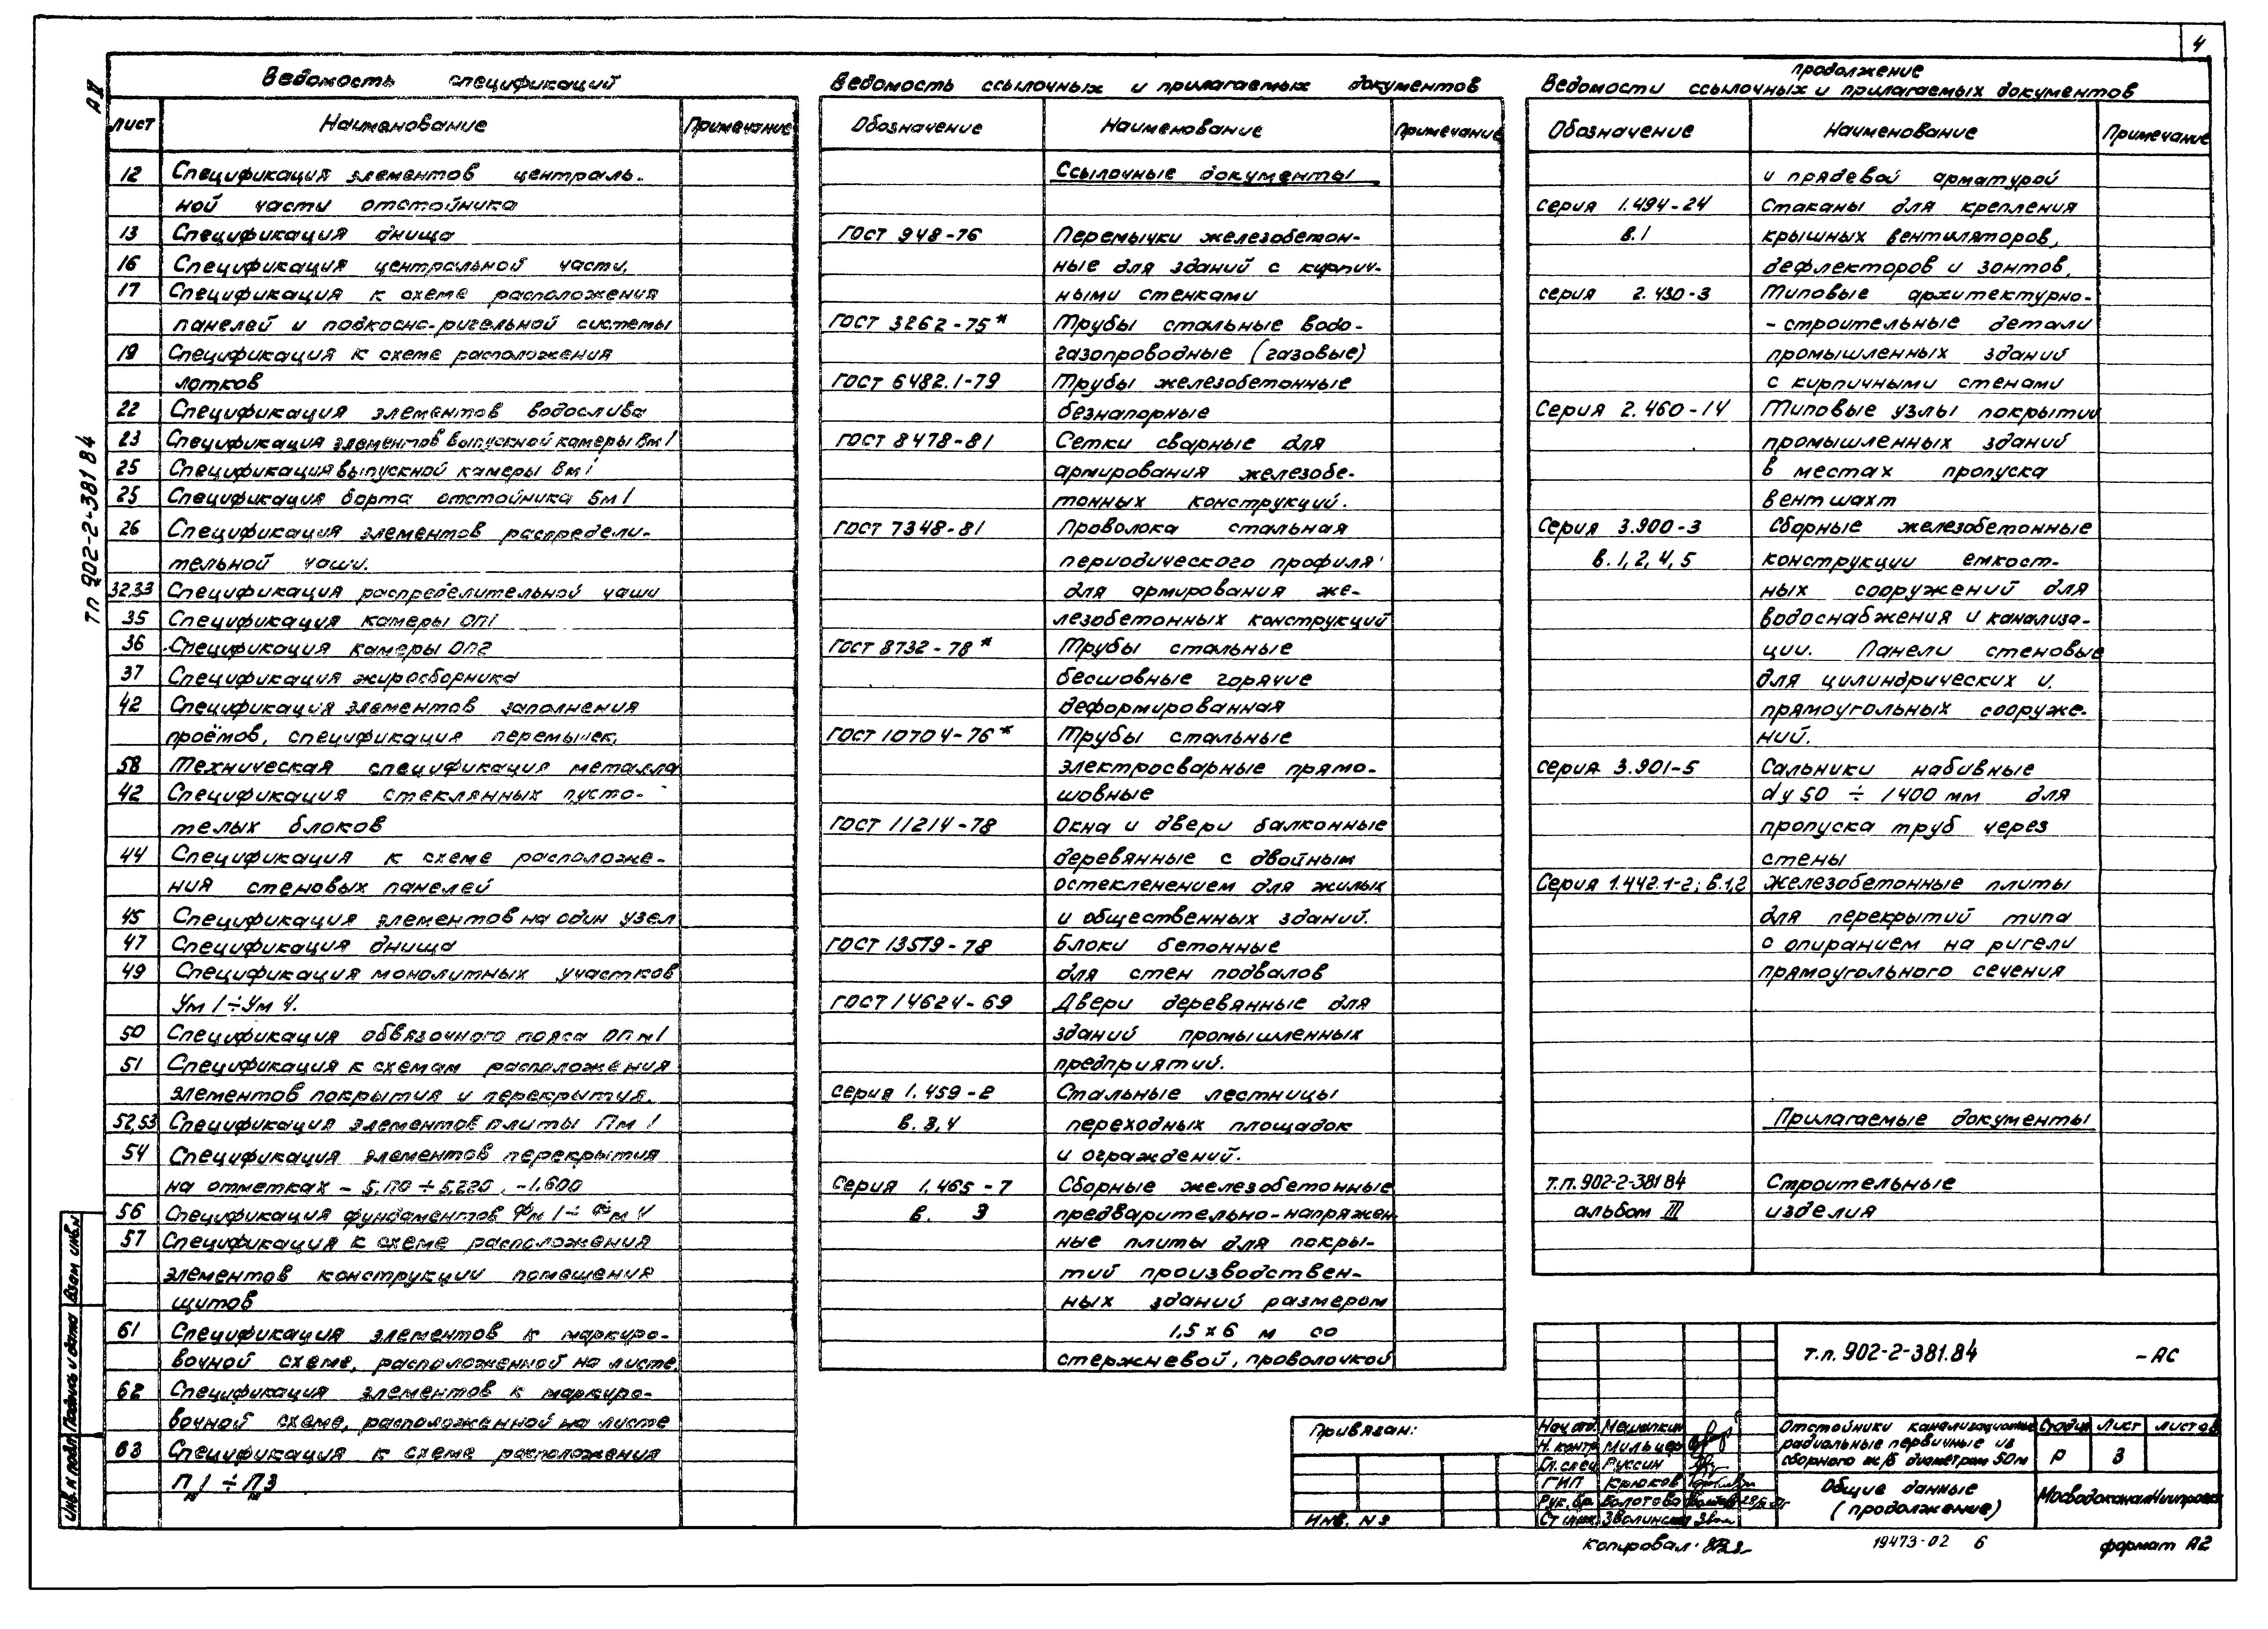 4
АII
тп 902-2-381 84
Ведомость спецификаций
лист Наименование Примечание
12 Спецификация элементов централь-
ной части отстойника
13 Спецификация днища
16 Спецификация центральной части.
17 Спецификация к схеме расположения
панелей и подкосно-ригельной системы
19 Спецификация к схеме расположения
лотков
22 Спецификация элементов водослива
23 Спецификация элементов выпускной камеры Вм1
25 Спецификация выпускной камеры Вм1
25 Спецификация борта отстойника Бм1
26 Спецификация элементов распредели-
тельной чаши.
32,33 Спецификация распределительной чаши
35 Спецификация камеры ОП1
36 Спецификация камеры ОП2
37 Спецификация жиросборника
42 Спецификация элементов заполнения
проёмов, спецификация перемычек,
58 Техническая спецификация металла
42 Спецификация стеклянных пусто-
телых блоков
44 Спецификация к схеме расположе-
ния стеновых панелей
45 Спецификация элементов на один узел
47 Спецификация днища
49 Спецификация монолитных участков
Ум 1÷Ум 4.
50 Спецификация обвязочного пояса ОПм1
51 Спецификация к схемам расположения
элементов покрытия и перекрытия.
52,53 Спецификация элементов плиты Пм 1
54 Спецификация элементов перекрытия
на отметках - 5,170 ÷ 5,220, -1.600
56 Спецификация фундаментов Фм 1 ÷ Фм 4
57 Спецификация к схеме расположения
элементов конструкции помещения
щитов
61 Спецификация элементов к маркиро-
вочной схеме, расположенной на листе.
62 Спецификация элементов к маркиро-
вочной схеме, расположенной на листе
63 Спецификация к схеме расположения
Пм1 ÷ Пм3
Ведомость ссылочных и прилагаемых документов
Обозначение Наименование Примечание
Ссылочные документы
ГОСТ 948-76 Перемычки железобетон-
ные для зданий с кирпич-
ными стенками
ГОСТ 3262-75* Трубы стальные водо-
газопроводные (газовые)
ГОСТ 6482.1-79 Трубы железобетонные
безнапорные
ГОСТ 8478-81 Сетки сварные для
армирования железобе-
тонных конструкций.
ГОСТ 7348-81 Проволока стальная
периодического профиля
для армирования же-
лезобетонных конструкций
ГОСТ 8732-78* Трубы стальные
бесшовные горячие
деформированная
ГОСТ 10704-76* Трубы стальные
электросварные прямо-
шовные
ГОСТ 11214-78 Окна и двери балконные
деревянные с двойным
остекленением для жилых
и общественных зданий.
ГОСТ 13579-78 Блоки бетонные
для стен подвалов
ГОСТ 14624-69 Двери деревянные для
зданий промышленных
предприятий.
серия 1.459-2 Стальные лестницы
в. 3,4 переходных площадок
и ограждений.
Серия 1.465-7 Сборные железобетонные
в. 3 предварительно-напряжен-
ные плиты для покры-
тий производствен-
ных зданий размером
1,5×6 м со
стержневой, проволочной
продолжение
Ведомости ссылочных и прилагаемых документов
Обозначение Наименование Примечание
и прядевой арматурой
серия 1.494-24 Стаканы для крепления
в.1 крышных вентиляторов,
дефлекторов и зонтов,
серия 2.430-3 Типовые архитектурно-
-строительные детали
промышленных зданий
с кирпичными стенами
Серия 2.460-14 Типовые узлы покрытий
промышленных зданий
в местах пропуска
вентшахт
Серия 3.900-3 Сборные железобетонные
в.1,2,4,5 конструкции емкост-
ных сооружений для
водоснабжения и канализа-
ции. Панели стеновые
для цилиндрических и.
прямоугольных сооруже-
ний.
серия 3.901-5 Сальники набивные
dy 50 ÷ 1400 мм для
пропуска труб через
стены
Серия 1.442.1-2; в.1,2 Железобетонные плиты
для перекрытий типа
с опиранием на ригели
прямоугольного сечения
Прилагаемые документы
т.п. 902-2-381 84 Строительные
альбом III изделия
Инв. N подл Подпись и дата Взам инв.N
Привязан:
Инв. N
т.п. 902-2-381.84 -АС
Нач отд. Мешалкин
Н. контр Мильцер
Гл. спец Руссин
ГИП Крюков
Рук. бр. Болотова
Ст инж.
Отстойники канализационные
радиальные первичные из
сборного ж/б диаметром 50м
Стадия Лист Листов
Р 3
Общие данные
(продолжение)
МосводоканалНиипроект
Копировал:
19473-02 6
формат А2